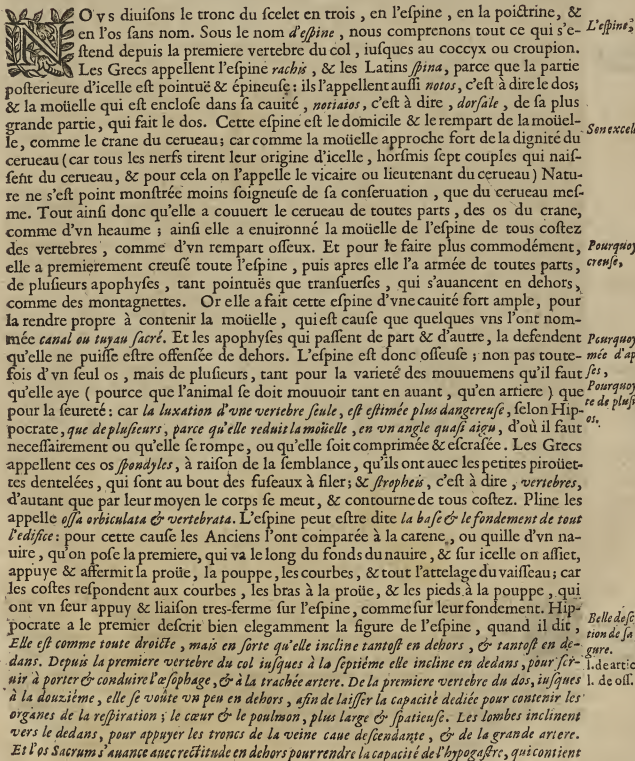 NOvs diuiſons le tronc du ſcelet en trois, en l'eſpine, en la poiƈtrine, &
en l'os ſans nom. Sous le nom d'eſpine, nous comprenons tout ce qui s'e-
L'eſpine,
ſtend depuis la premiere vertebre du col, iuſques au coccyx ou croupion.
Les Grecs appellent l'eſpine rachis, & les Latins ſpina, parce que la partie
poſterieure d'icelle eſt pointuë & épineuſe: ils l'appellent auſſi notos, c'eſt à dire le dos;
& la moüelle qui eſt encloſe dans ſa cauité, notiaios, c'eſt à dire, dorſale, de ſa plus
grande partie, qui fait le dos. Cette eſpine eſt le domicile & le rempart de la moüel-
le, comme le crane du cerueau; car comme la moüelle approche fort de la dignité du
Son excel
cerueau (car tous les nerfs tirent leur origine d'icelle, horſmis ſept couples qui naiſ-
ſent du cerueau, & pour cela on l'appelle le vicaire ou lieutenant du cerueau) Natu-
re ne s'eſt point monſtrée moins ſoigneuſe de ſa conſeruation, que du cerueau meſ-
me. Tout ainſi donc qu'elle a couuert le cerueau de toutes parts, des os du crane,
comme d'vn heaume; ainſi elle a enuironné la moüelle de l'eſpine de tous coſtez
des vertebres, comme d'vn rempart oſſeux. Et pour le faire plus commodément,
Pourquoy
elle a premierement creuſé toute l'eſpine, puis apres elle l'a armée de toutes parts,
creuſe,
de pluſieurs apophyſes, tant pointuës que tranſuerſes, qui s'auancent en dehors,
comme des montagnettes. Or elle a fait cette eſpine d'vne cauité fort ample, pour
la rendre propre à contenir la moüelle, qui eſt cauſe que quelques vns l'ont nom-
mée canal ou tuyau ſacré. Et les apophyſes qui paſſent de part & d'autre, la defendent
Pourquoy
qu'elle ne puiſſe eſtre offenſée de dehors. L'eſpine eſt donc oſſeuſe; non pas toute-
mée d'ap
fois d'vn ſeul os, mais de pluſieurs, tant pour la varieté des mouuemens qu'il faut
ſes,
qu'elle aye (pource que l'animal ſe doit mouuoir tant en auant, qu'en arriere) que
Pourquoy
pour la ſeureté: car la luxation d'vne vertebre ſeule, eſt eſtimée plus dangereuſe, ſelon Hip-
te de pluſi
pocrate, que de pluſieurs, parce qu'elle reduit la moüelle, en vn angle quaſi aigu, d'où il faut
os.
neceſſairement ou qu'elle ſe rompe, ou qu'elle ſoit comprimée & eſcraſée. Les Grecs
appellent ces os ſpondyles, à raiſon de la ſemblance, qu'ils ont auec les petites piroüet-
tes dentelées, qui ſont au bout des fuſeaux à filer; & ſtropheis, c'eſt à dire, vertebres,
d'autant que par leur moyen le corps ſe meut, & contourne de tous coſtez. Pline les
appelle oſſa orbiculata & vertebrata. L'eſpine peut eſtre dite la baſe & le fondement de tout
l'edifice: pour cette cauſe les Anciens l'ont comparée à la carene, ou quille d'vn na-
uire, qu'on poſe la premiere, qui va le long du fonds du nauire, & ſur icelle on aſſiet,
appuye & affermit la proüe, la pouppe, les courbes, & tout l'attelage du vaiſſeau; car
les coſtes reſpondent aux courbes, les bras à la proüe, & les pieds à la pouppe, qui
ont vn ſeur appuy & liaiſon tres-ferme ſur l'eſpine, comme ſur leur fondement. Hip-
pocrate a le premier deſcrit bien elegamment la figure de l'eſpine, quand il dit,
Belle deſc
Elle eſt comme toute droiƈte, mais en ſorte qu'elle incline tantoſt en dehors, & tantoſt en de-
tion de ſa
gure.
dans. Depuis la premiere vertebre du col iuſques à la ſeptiéme elle incline en dedans, pour ſer-
l. de artic
uir à porter & conduire l'œſophage, & à la trachée artere. De la premiere vertebre du dos, iuſques
l. de oſſ.
à la douziéme, elle ſe voûte vn peu en dehors, afin de laiſſer la capacité dediée pour contenir les
organes de la reſpiration; le cœur & le poulmon, plus large & ſpatieuſe. Les lombes inclinent
vers le dedans, pour appuyer les troncs de la veine caue deſcendante, & de la grande artere.
Et l'os Sacrum s'auance auec reƈtitude en dehors pour rendre la capacité de l'hypogaſtre, qui contient